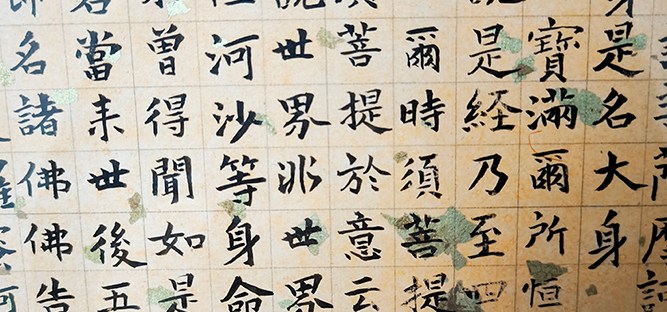 身是名大身
寶滿爾所恒
是経乃至四
爾時須菩提
菩提於意云
說世界非世界
河沙等身命
曾得聞如是
當来世後五
即名諸佛佛告